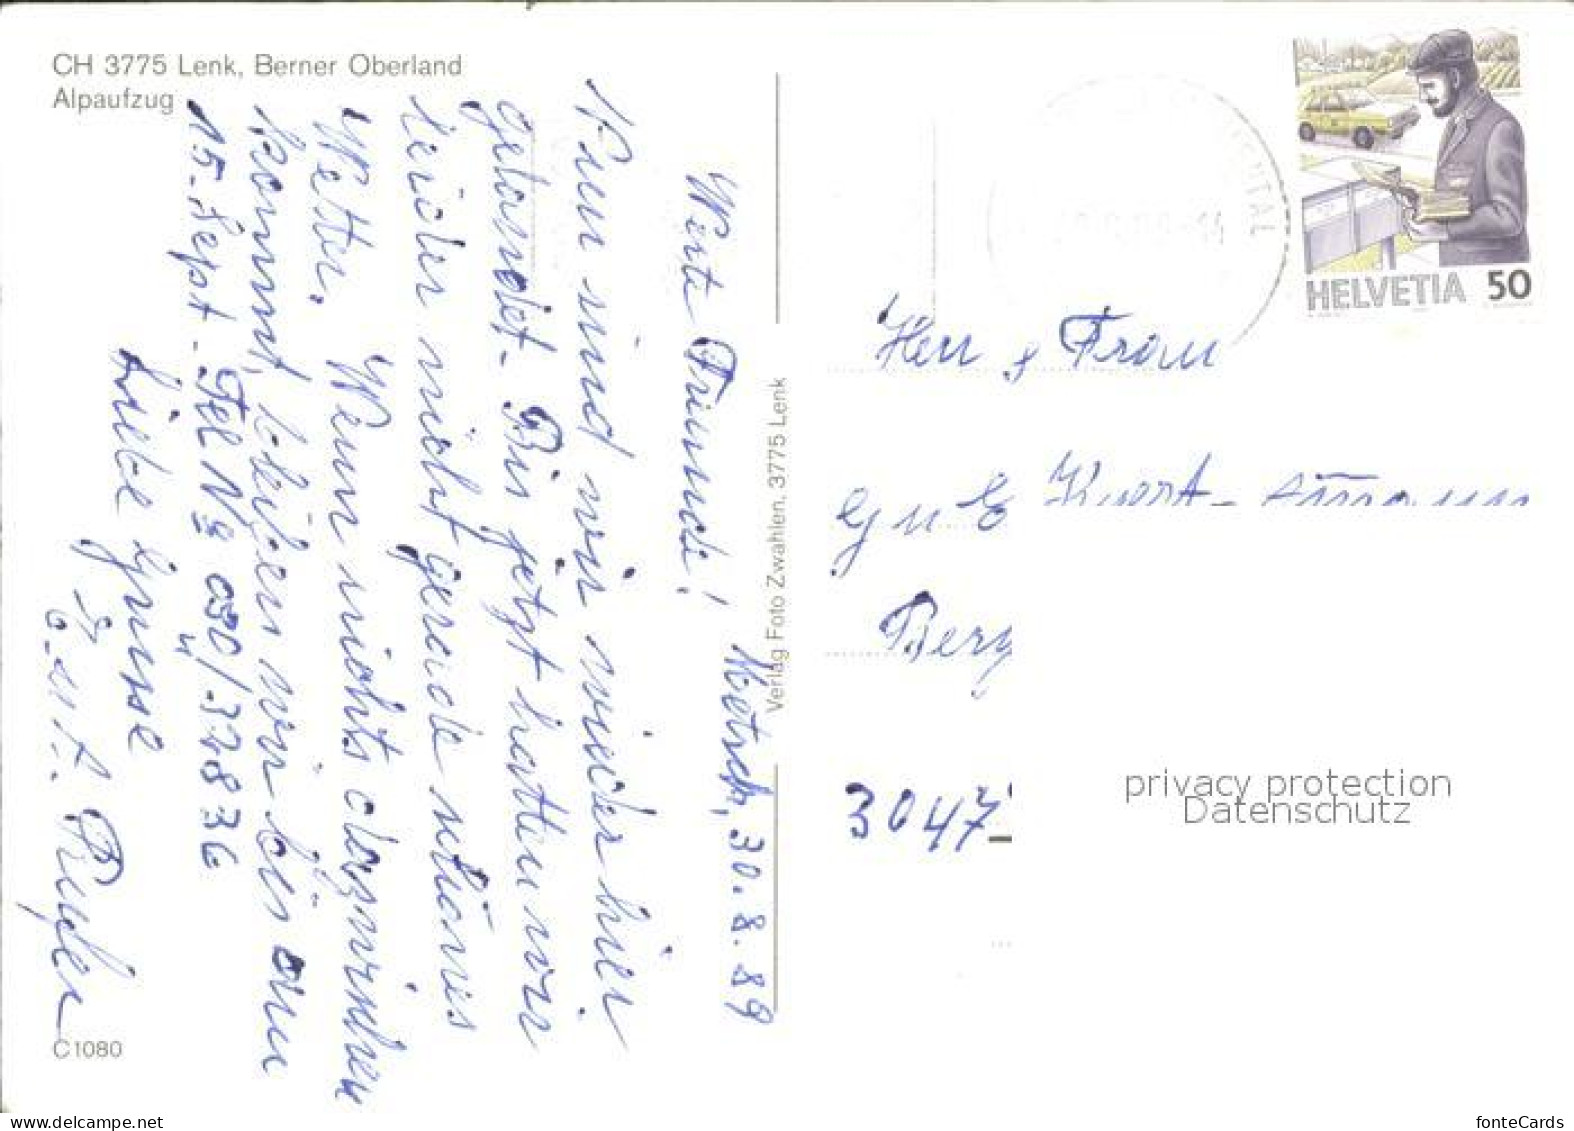 CH 3775 Lenk, Berner Oberland
Alpaufzug
Metsch, 30.8.89
Werte Freunde!
Nun sind wir wieder hier
gelandet. Bis jetzt hatten wir
leider nicht gerade schönes
Wetter. Wenn nichts dazwischen
kommt, bleiben wir bis am
15. Sept. Tel No 030/32836
Liebe Grüsse
Verlag Foto Zwahlen, 3775 Lenk
C1080
TAL
HELVETIA 50
Herr & Frau
G u E
Berg
3047
privacy protection
Datenschutz
www.delcampe.net
fonteCards